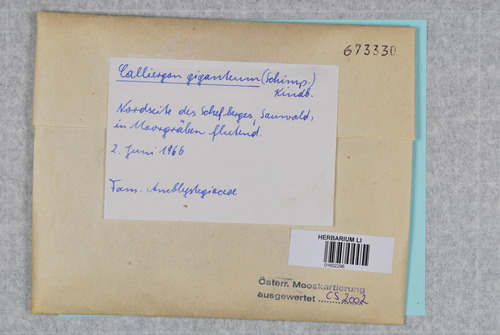 673330
Calliergon giganteum (Schimp.)
Kindb.
Nordseite des Schefberges, Sauwald,
in Moorgräben flutend.
2. Juni 1966
Fam. Amblystegiaceae
HERBARIUM LI
01602296
Österr. Mooskartierung
ausgewertet CS 2002